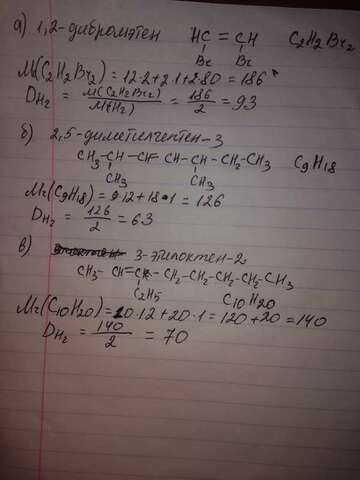 а) 1,2-дибромэтен HC = CH C2H2Br2
Br Br
Mr(C2H2Br2) = 12·2+2·1+2·80 = 186
DH2 = M(C2H2Br2) / M(H2) = 186 / 2 = 93
б) 2,5-диметилгептен-3
CH3-CH-CH CH-CH-CH2-CH3 C9H18
CH3 CH3
Mr(C9H18) = 9·12+18·1 = 126
DH2 = 126 / 2 = 63
в) 3-этилоктен-2
CH3- CH=C-CH2-CH2-CH2-CH2-CH3
C2H5 C10H20
Mr(C10H20) = 10·12+20·1 = 120+20 = 140
DH2 = 140 / 2 = 70